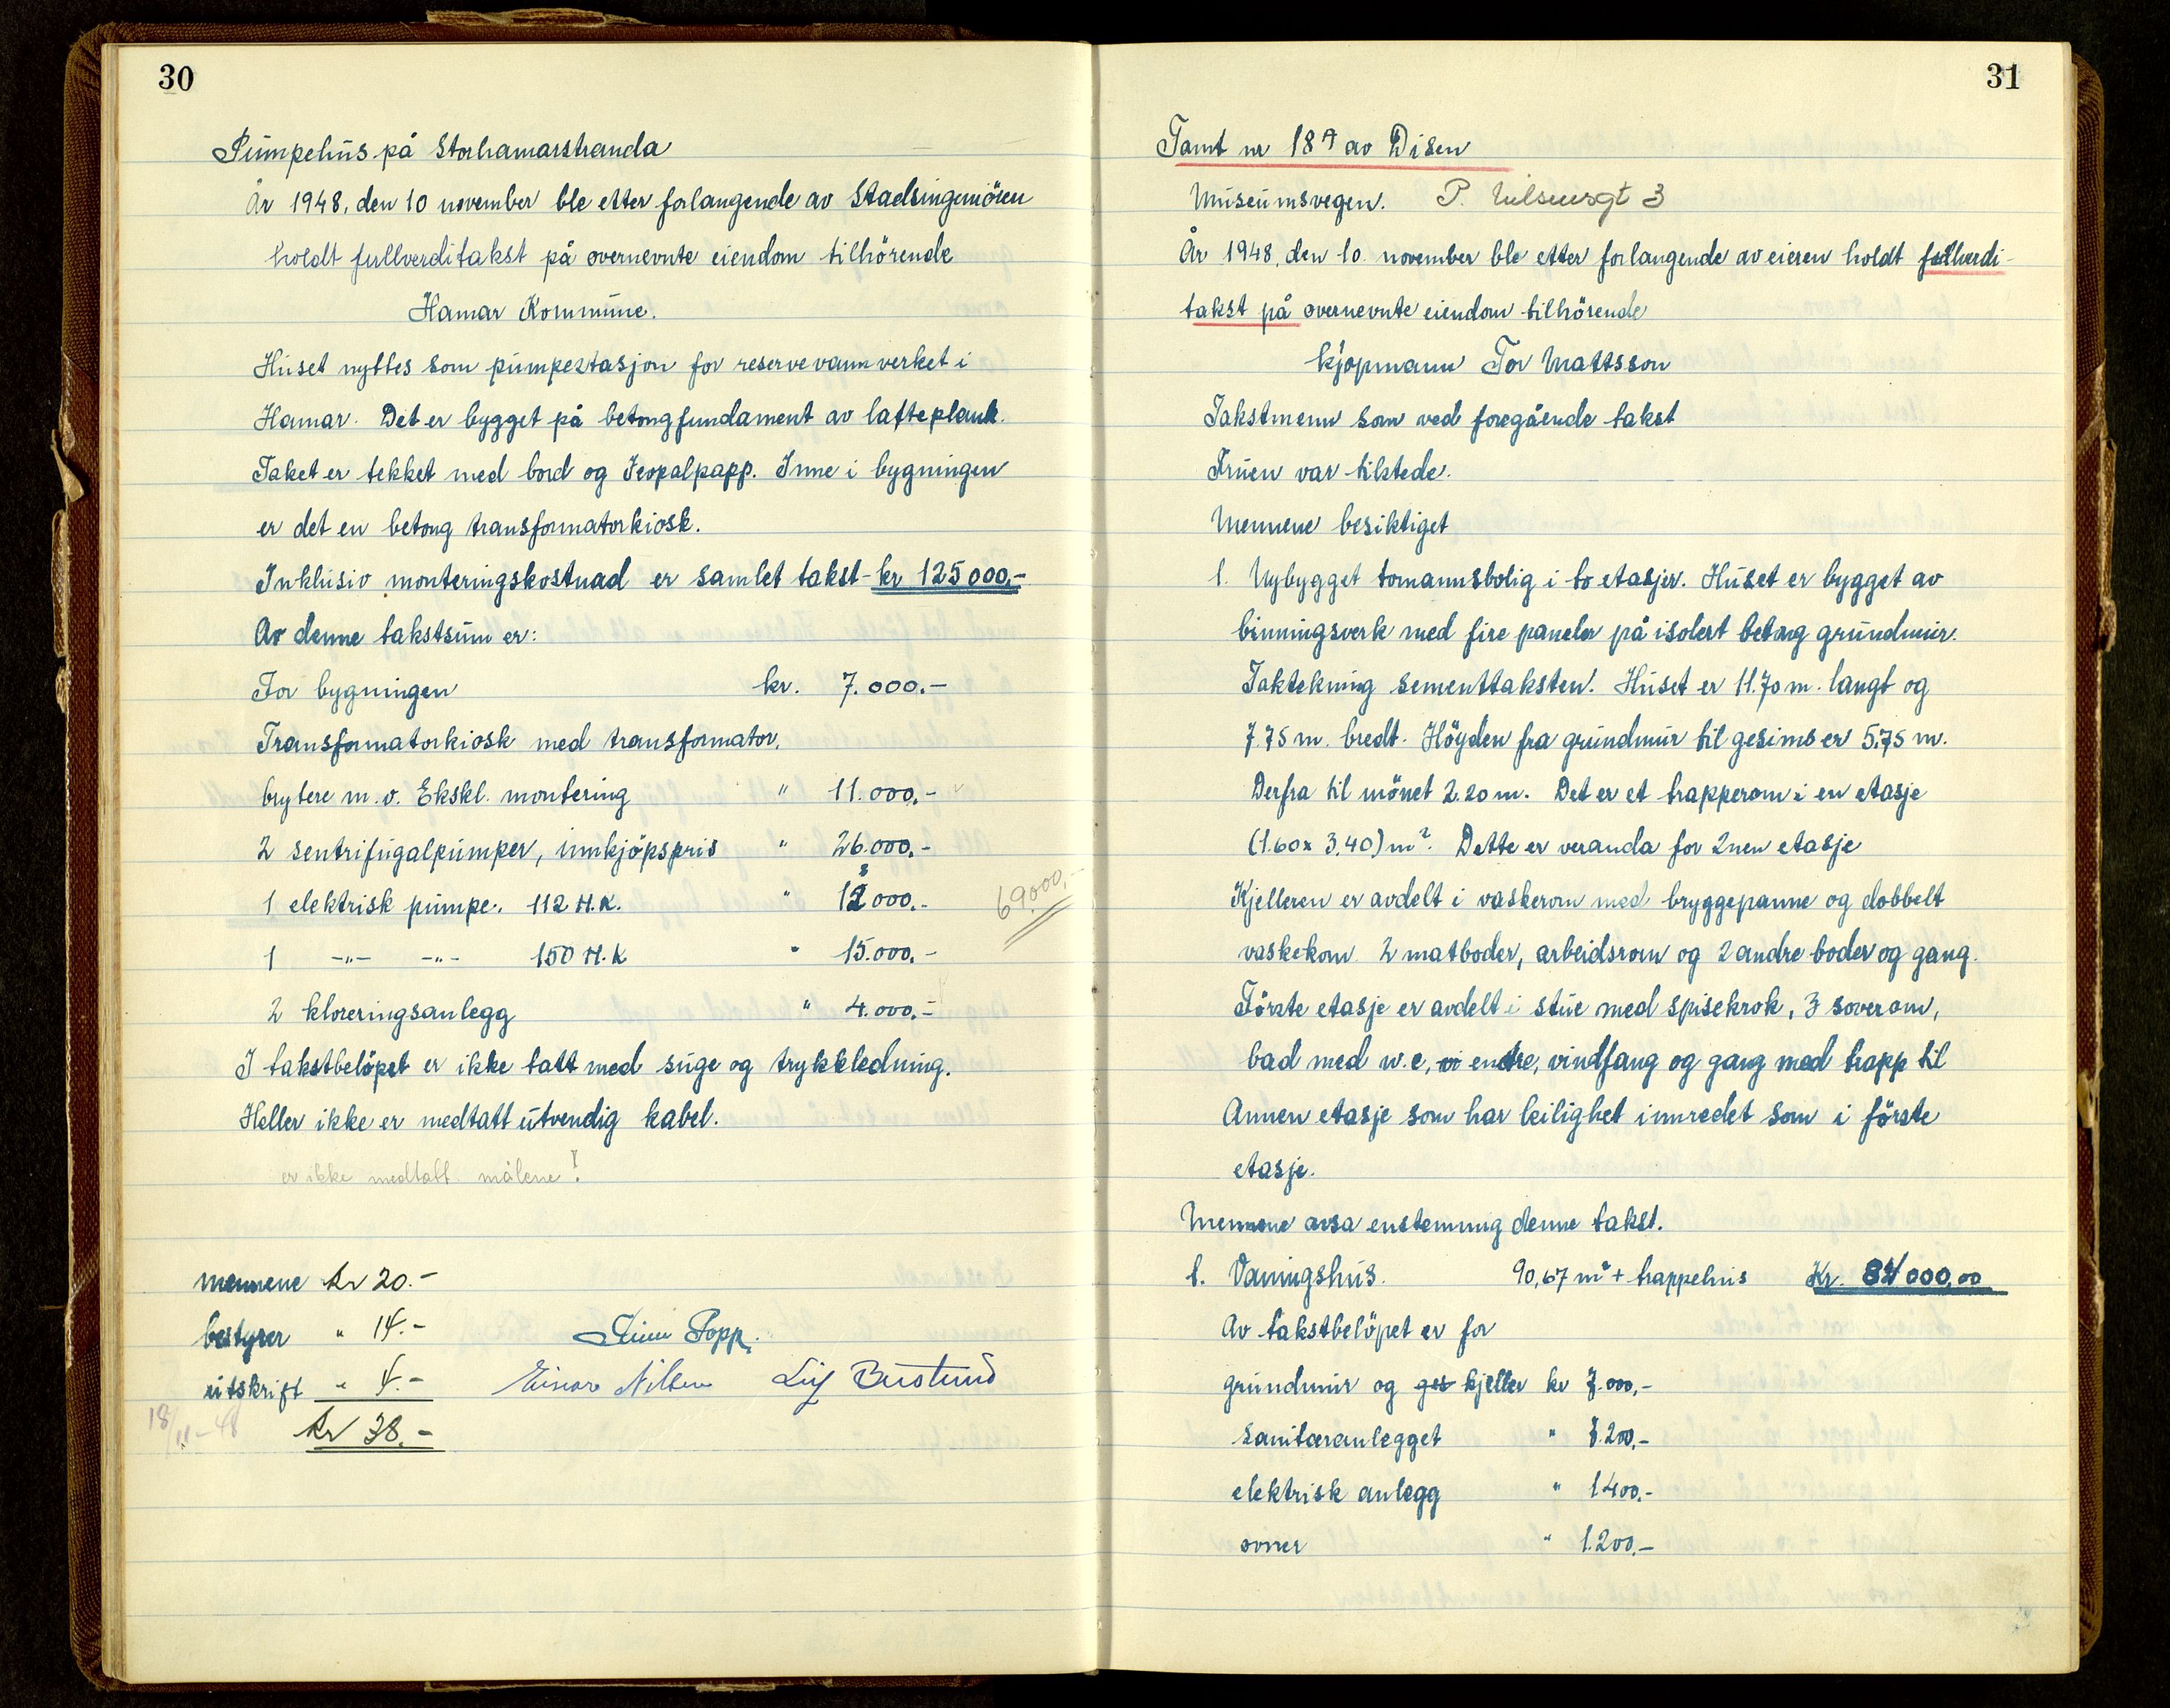 30
Pumpehus på Storhamarstranda
År 1948, den 10 november ble etter forlangende av Stadsingeniören
holdt fullverditakst på overnevnte eiendom tilhörende
Hamar Kommune.
Huset nyttes som pumpestasjon for reservevannverket i
Hamar. Det er bygget på betongfundament av lafteplank.
Taket er tekket med bord og Icopalpapp. Inne i bygningen
er det en betong transformatorkiosk.
Inklusiv monteringskostnad er samlet takst - kr 125000,-
Av denne takstsum er:
For bygningen kr. 7.000.-
Transformatorkiosk med transformator,
brytere m.v. Ekskl. montering " 11.000,-
2 sentrifugalpumper, innkjöpspris " 26.000,-
1 elektrisk pumpe. 112 H.K. " 12000,- 69.000,-
1 -"- -"- 150 H.K " 15.000,-
2 kloreringsanlegg " 4.000,-
I takstbelöpet er ikke tatt med suge og trykkledning.
Heller ikke er medtatt utvendig kabel.
er ikke medtatt målene!
mennene kr 20.-
bestyrer " 14.-
utskrift " 4.- Einar Nilsen Leif Bustund
18/11-48 kr 38.-
31
Tomt nr 18 av Disen
Museumsvegen. P. Nilsensgt 3
År 1948, den 10. november ble etter forlangende av eieren holdt fullverdi-
takst på overnevnte eiendom tilhörende
kjöpmann Tor Mattsson
Takstmenn som ved foregående takst
Fruen var tilstede.
Mennene besiktiget
1. Nybygget tomannsbolig i to etasjer. Huset er bygget av
binningsverk med fire paneler på isolert betong grundmur.
Taktekning sementtaksten. Huset er 11.70 m. langt og
7.75 m. bredt. Höyden fra grundmur til gesims er 5.75 m.
Derfra til mönet 2.20 m. Det er et trapperom i en etasje
(1.60 x 3.40) m². Dette er veranda for 2nen etasje
Kjelleren er avdelt i vaskerom med bryggepanne og dobbelt
vaskekom. 2 matboder, arbeidsrom og 2 andre boder og gang.
Förste etasje er avdelt i stue med spisekrok, 3 soverom,
bad med w.c, entre, vindfang og gang med trapp til
Annen etasje som har leilighet innredet som i förste
etasje.
Mennene avsa enstemmig denne takst.
1. Våningshus. 90,67 m² + trappehus Kr. 84000,00
Av takstbelöpet er for
grundmur og ges kjeller kr 7.000,-
sanitæranlegget " 7.200,-
elektrisk anlegg " 1400,-
ovner " 1.200,-